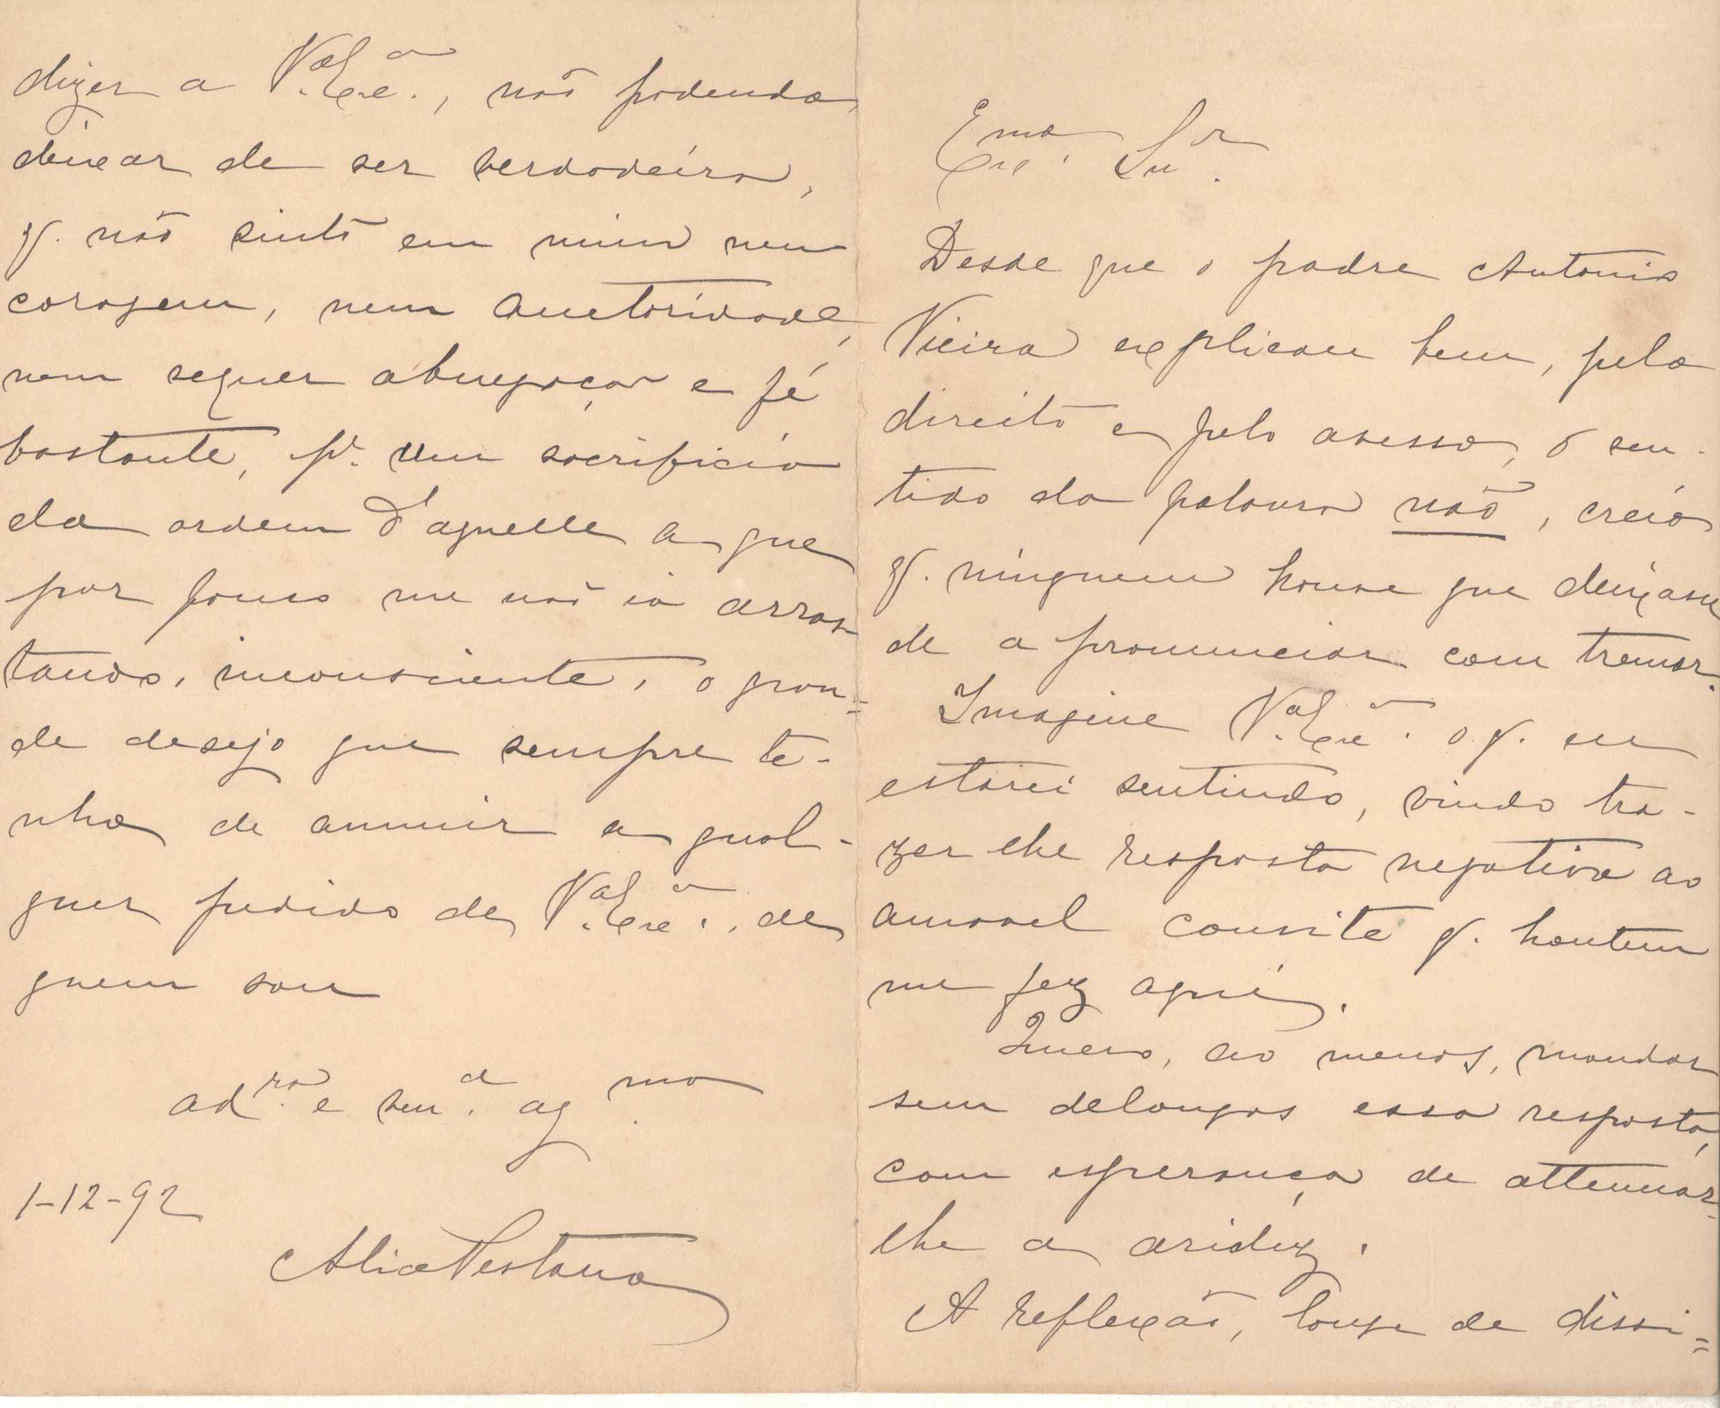 Exmo. Snr.
Desde que o padre Antonio
Vieira explicou bem, pelo
direito e pelo avesso, o sen-
tido da palavra não, creio
q. ninguem houve que deixasse
de a pronunciar com tremor.
Imagine V.a Ex.cia o q. eu
estarei sentindo, vindo tra-
zer lhe resposta negativa ao
amavel convite q. hontem
me fez aqui.
Quero, ao menos, mandar
sem delongas essa resposta,
com esperança de attenuar-
lhe a aridez.
A reflexão, longe de dissi=
dizer a V.a Ex.cia, não podendo
deixar de ser verdadeira,
q. não sinto em mim nem
coragem, nem auctoridade,
nem sequer abnegação e fé
bastante, p.a um sacrificio
da ordem d'aquelle a que
por pouco me não ia arras-
tando, inconsciente, o gran=
de desejo que sempre te-
nho de annuir a qual-
quer pedido de V.a Ex.cia, de
quem sou
ad.ra e ag.ma
1-12-92
Alice Pestana